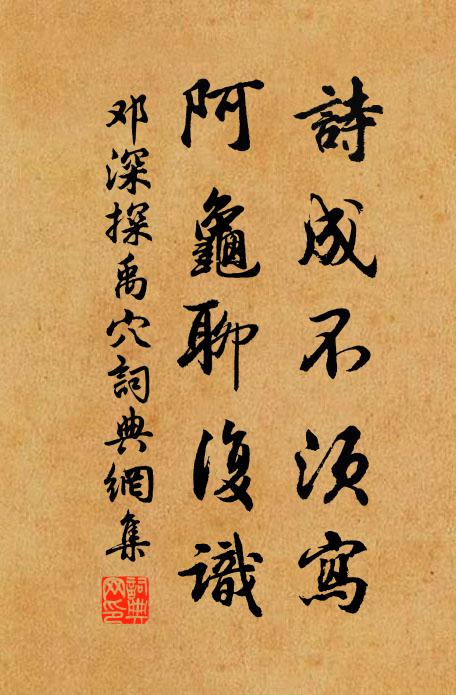 詩成不須寫
阿龜聊復識
邓深探禹穴詞典網集
詞典
网印